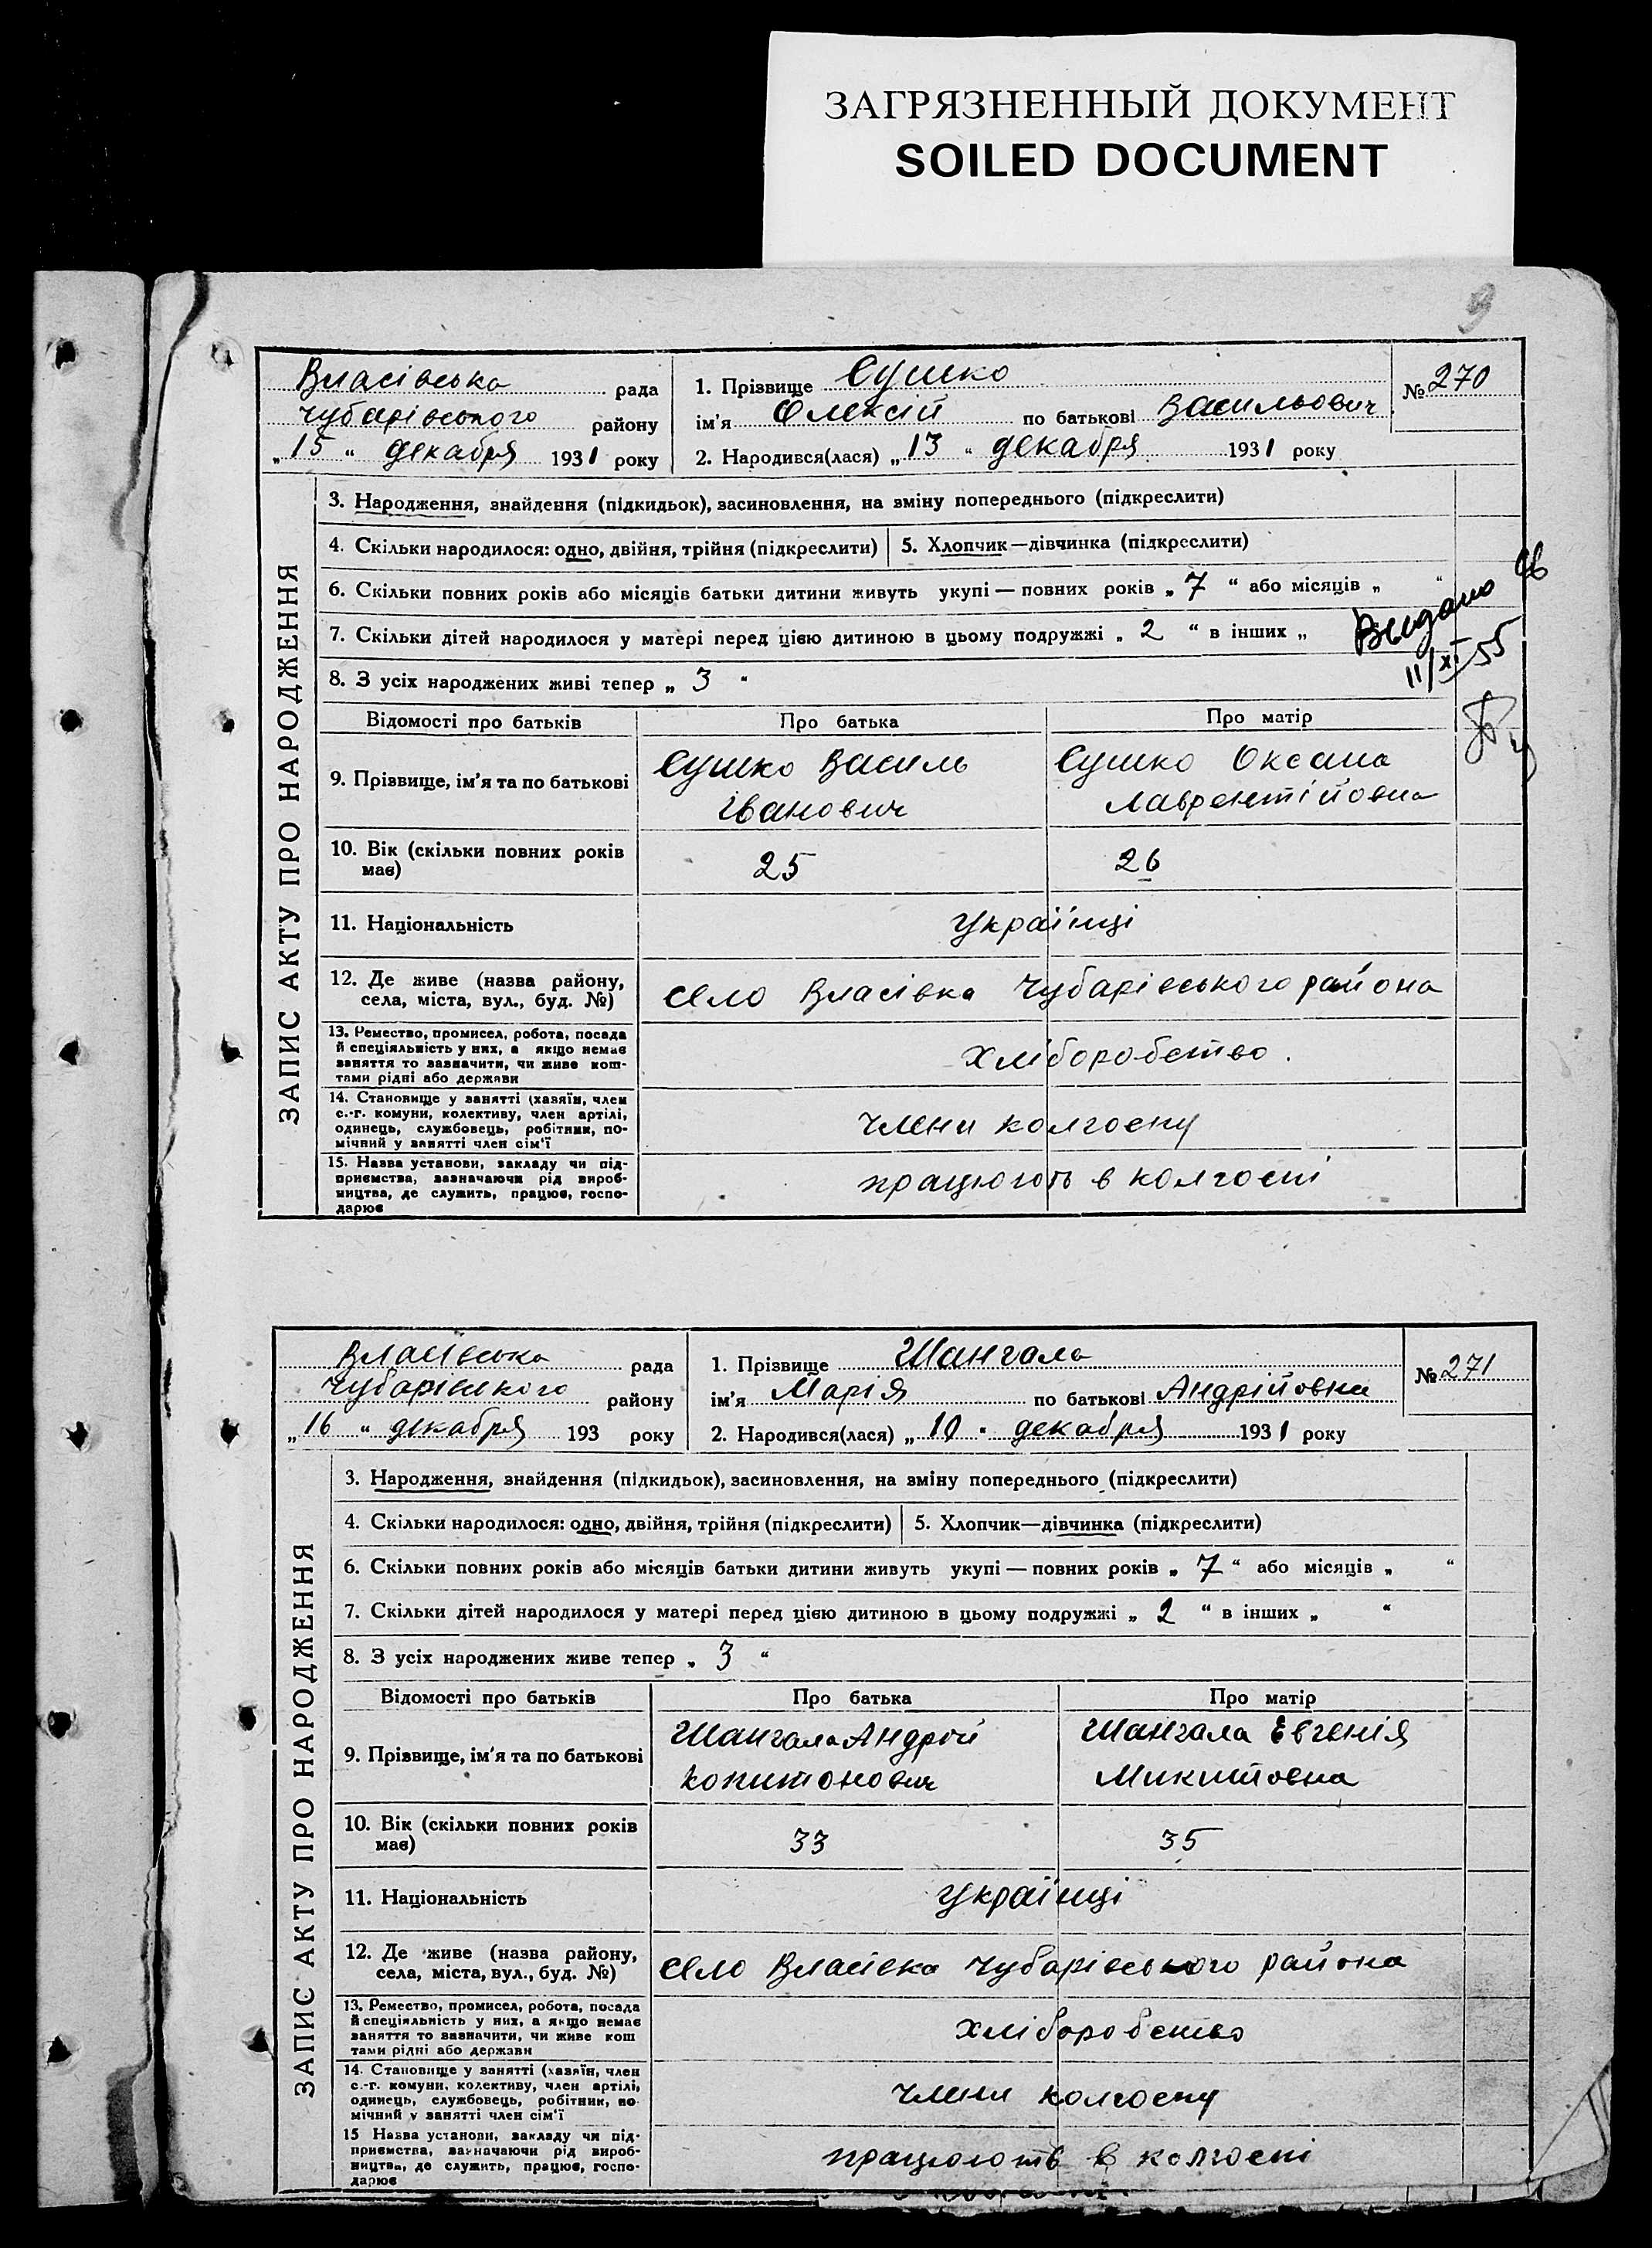 ЗАГРЯЗНЕННЫЙ ДОКУМЕНТ
SOILED DOCUMENT
9
Власівська рада
Чубарівського району
„15“ декабря 1931 року
1. Прізвище Сушко
ім'я Олексій по батькові Васильович
2. Народився(лася) „13“ декабря 1931 року
№ 270
ЗАПИС АКТУ ПРО НАРОДЖЕННЯ
3. Народження, знайдення (підкидьок), засиновлення, на зміну попереднього (підкреслити)
4. Скільки народилося: одно, двійня, трійня (підкреслити) 5. Хлопчик—дівчинка (підкреслити)
6. Скільки повних років або місяців батьки дитини живуть укупі — повних років „7“ або місяців „ “
7. Скільки дітей народилося у матері перед цією дитиною в цьому подружжі „2“ в інших „
8. З усіх народжених живі тепер „3“
Видано
11/XI 55
Відомості про батьків Про батька Про матір
9. Прізвище, ім'я та по батькові
Сушко Василь
Іванович
Сушко Оксана
Лаврентійовна
10. Вік (скільки повних років
має)
25 26
11. Національність українці
12. Де живе (назва району,
села, міста, вул., буд. №)
село Власівка Чубарівського района
13. Ремество, промисел, робота, посада
й спеціяльність у них, а якщо немає
заняття то зазначити, чи живе кош-
тами рідні або держави
хліборобство.
14. Становище у занятті (хазяїн, член
с.-г. комуни, колективу, член артілі,
одинець, службовець, робітник, по-
мічний у занятті член сім'ї
члени колгоспу
15. Назва установи, закладу чи під-
приємства, зазначаючи рід вироб-
ництва, де служить, працює, госпо-
дарює
працюють в колгоспі
Власівська рада
Чубарівського району
„16“ декабря 193 року
1. Прізвище Шангала
ім'я Марія по батькові Андрійовна
2. Народився(лася) „10“ декабря 1931 року
№ 271
ЗАПИС АКТУ ПРО НАРОДЖЕННЯ
3. Народження, знайдення (підкидьок), засиновлення, на зміну попереднього (підкреслити)
4. Скільки народилося: одно, двійня, трійня (підкреслити) 5. Хлопчик—дівчинка (підкреслити)
6. Скільки повних років або місяців батьки дитини живуть укупі — повних років „7“ або місяців „ “
7. Скільки дітей народилося у матері перед цією дитиною в цьому подружжі „2“ в інших „ “
8. З усіх народжених живе тепер „3“
Відомості про батьків Про батька Про матір
9. Прізвище, ім'я та по батькові
Шангала Андрій
Копитонович
Шангала Евгенія
Микитовна
10. Вік (скільки повних років
має)
33 35
11. Національність українці
12. Де живе (назва району,
села, міста, вул., буд. №)
село Власівка Чубарівського района
13. Ремество, промисел, робота, посада
й спеціяльність у них, а якщо немає
заняття то зазначити, чи живе кош
тами рідні або держави
хліборобство
14. Становище у занятті (хазяїн, член
с.-г. комуни, колективу, член артілі,
одинець, службовець, робітник, по
мічний у занятті член сім'ї
члени колгоспу
15 Назва установи, закладу чи під-
приємства, зазначаючи рід вироб-
ництва, де служить, працює, госпо-
дарює
працюють в колгоспі